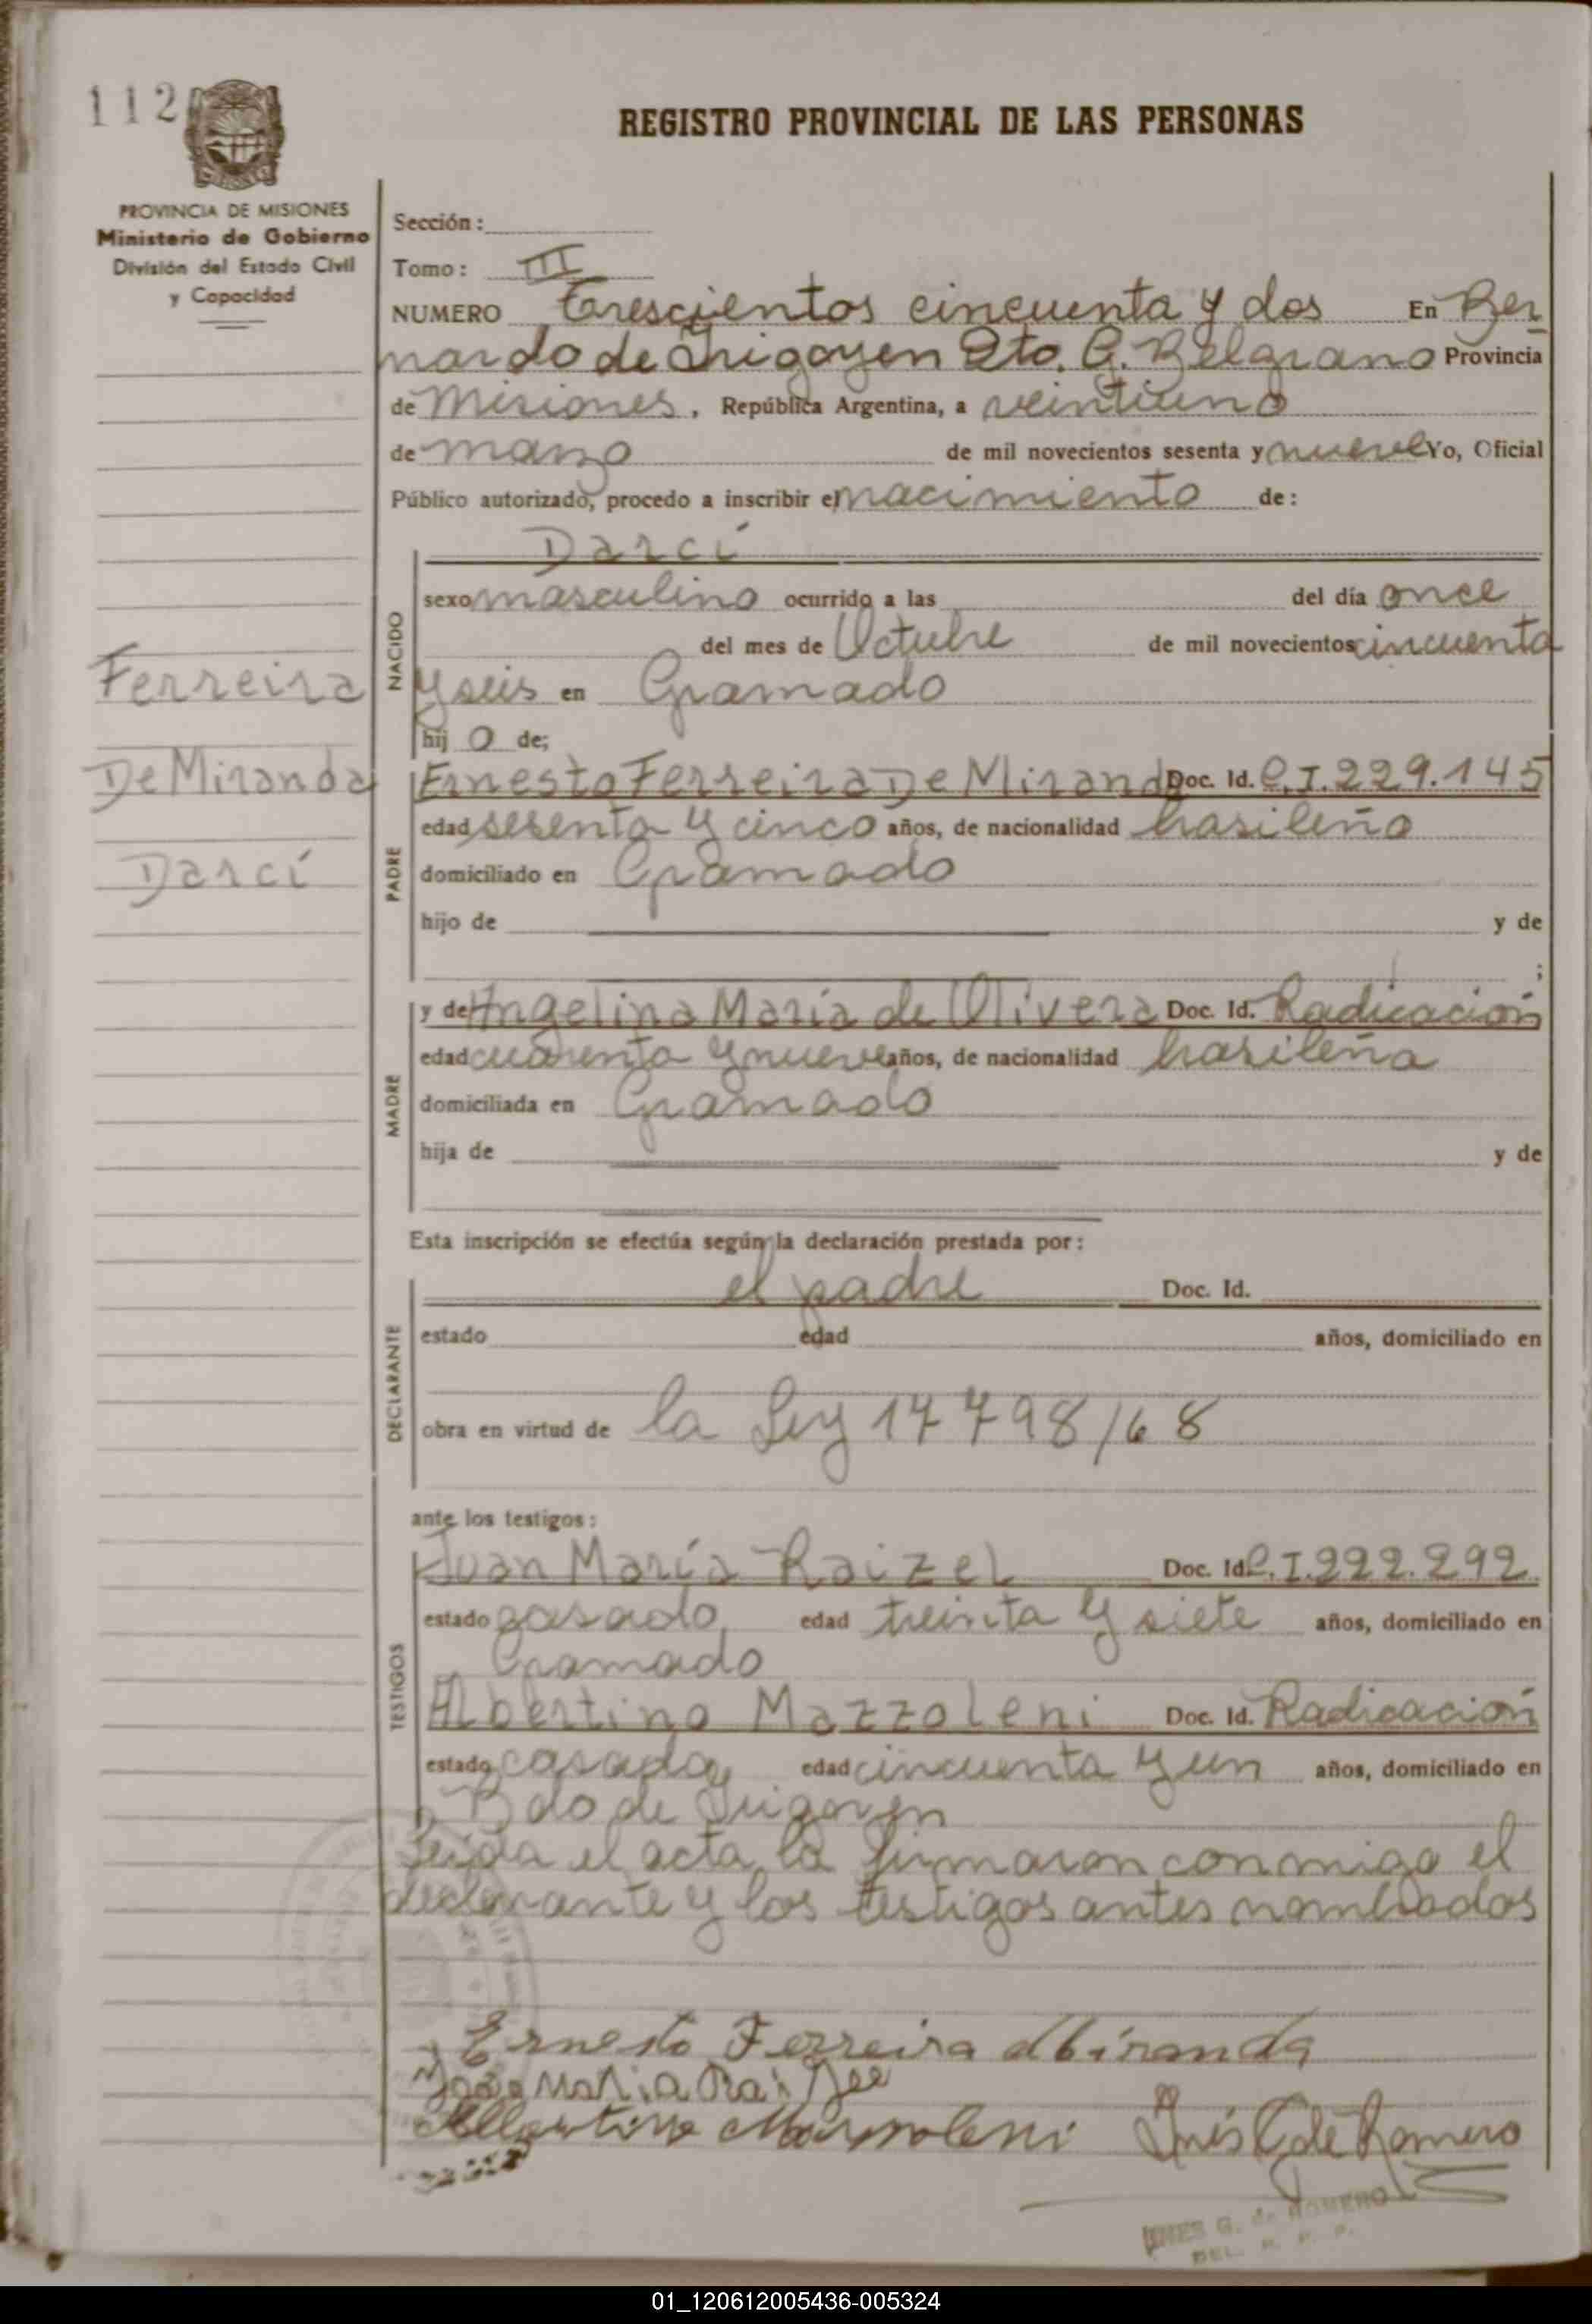 112
REGISTRO PROVINCIAL DE LAS PERSONAS
PROVINCIA DE MISIONES
Ministerio de Gobierno
División del Estado Civil
y Capacidad
Sección:
Tomo: III
NUMERO Trescientos cincuenta y dos En Ber
nardo de Irigoyen Dto. G. Belgrano Provincia
de Misiones. República Argentina, a veintiuno
de marzo de mil novecientos sesenta y nueve Yo, Oficial
Público autorizado, procedo a inscribir el nacimiento de:
Darcí
NACIDO
sexo masculino ocurrido a las del día once
del mes de Octubre de mil novecientos cincuenta
Ferreira
y seis en Gramado
hij o de;
De Miranda
PADRE
Ernesto Ferreira De Miranda Doc. Id. C.I. 229.145
edad sesenta y cinco años, de nacionalidad brasileño
Darcí
domiciliado en Gramado
hijo de y de
;
MADRE
y de Angelina María de Olivera Doc. Id. Radicación
edad cuarenta y nueve años, de nacionalidad brasileña
domiciliada en Gramado
hija de y de
Esta inscripción se efectúa según la declaración prestada por:
DECLARANTE
el padre Doc. Id.
estado edad años, domiciliado en
obra en virtud de la Ley 17798/68
ante los testigos:
TESTIGOS
Juan María Raizel Doc. Id. C.I. 222.292
estado casado edad treinta y siete años, domiciliado en
Gramado
Albertino Mazzoleni Doc. Id. Radicación
estado casado edad cincuenta y un años, domiciliado en
Bdo de Irigoyen
Leída el acta, la firmaron conmigo el
declarante y los testigos antes nombrados
Ernesto Ferreira Miranda
João Maria Raizel
Albertino Mazzoleni Inés G de Romero
INES G. de ROMERO
DEL. R. P. P.
01_120612005436-005324